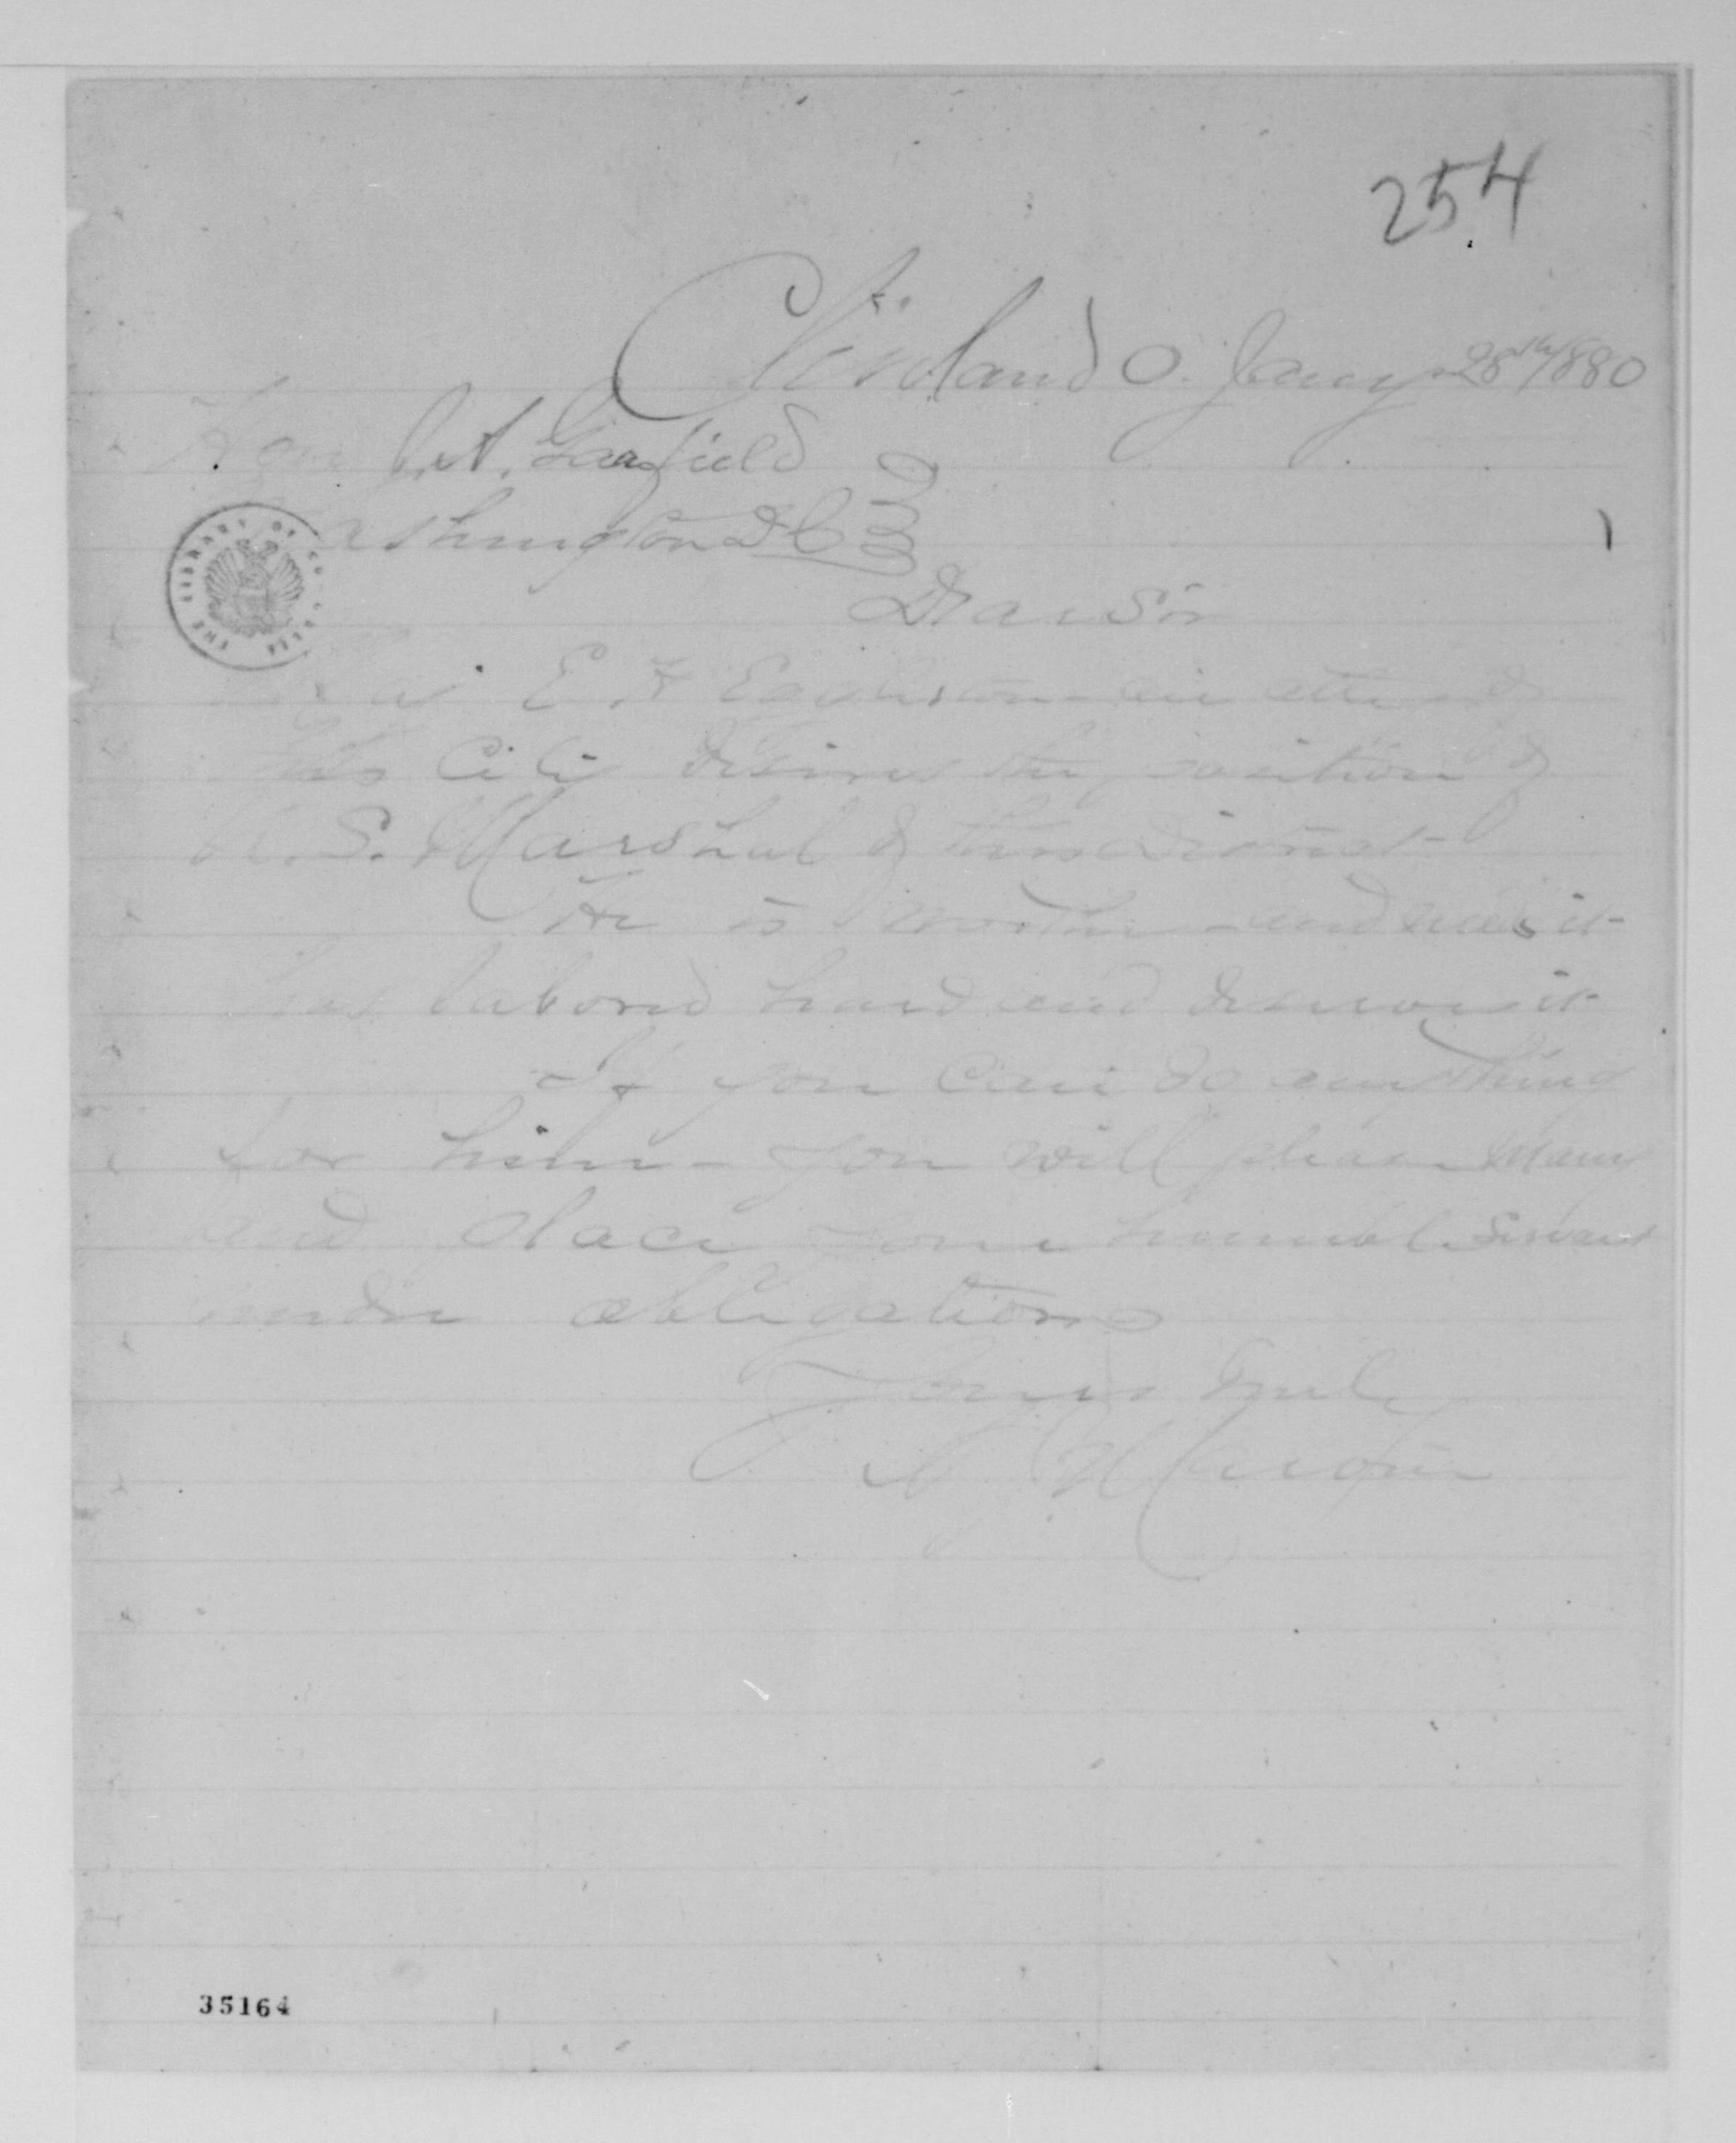 254
Cleveland O. Jany 28th/880
Hon J. A. Garfield
Washington D C
Dear Sir
E H Eggleston an atty of
this City desires the position of
U.S. Marshal of this District
He is worthy and needs it
has labored hard and deserves it
If you can do anything
for him - you will please Many
and place your humble Servant
under obligations
Yours Truly
A Martin
THE LIBRARY OF CONGRESS
35164